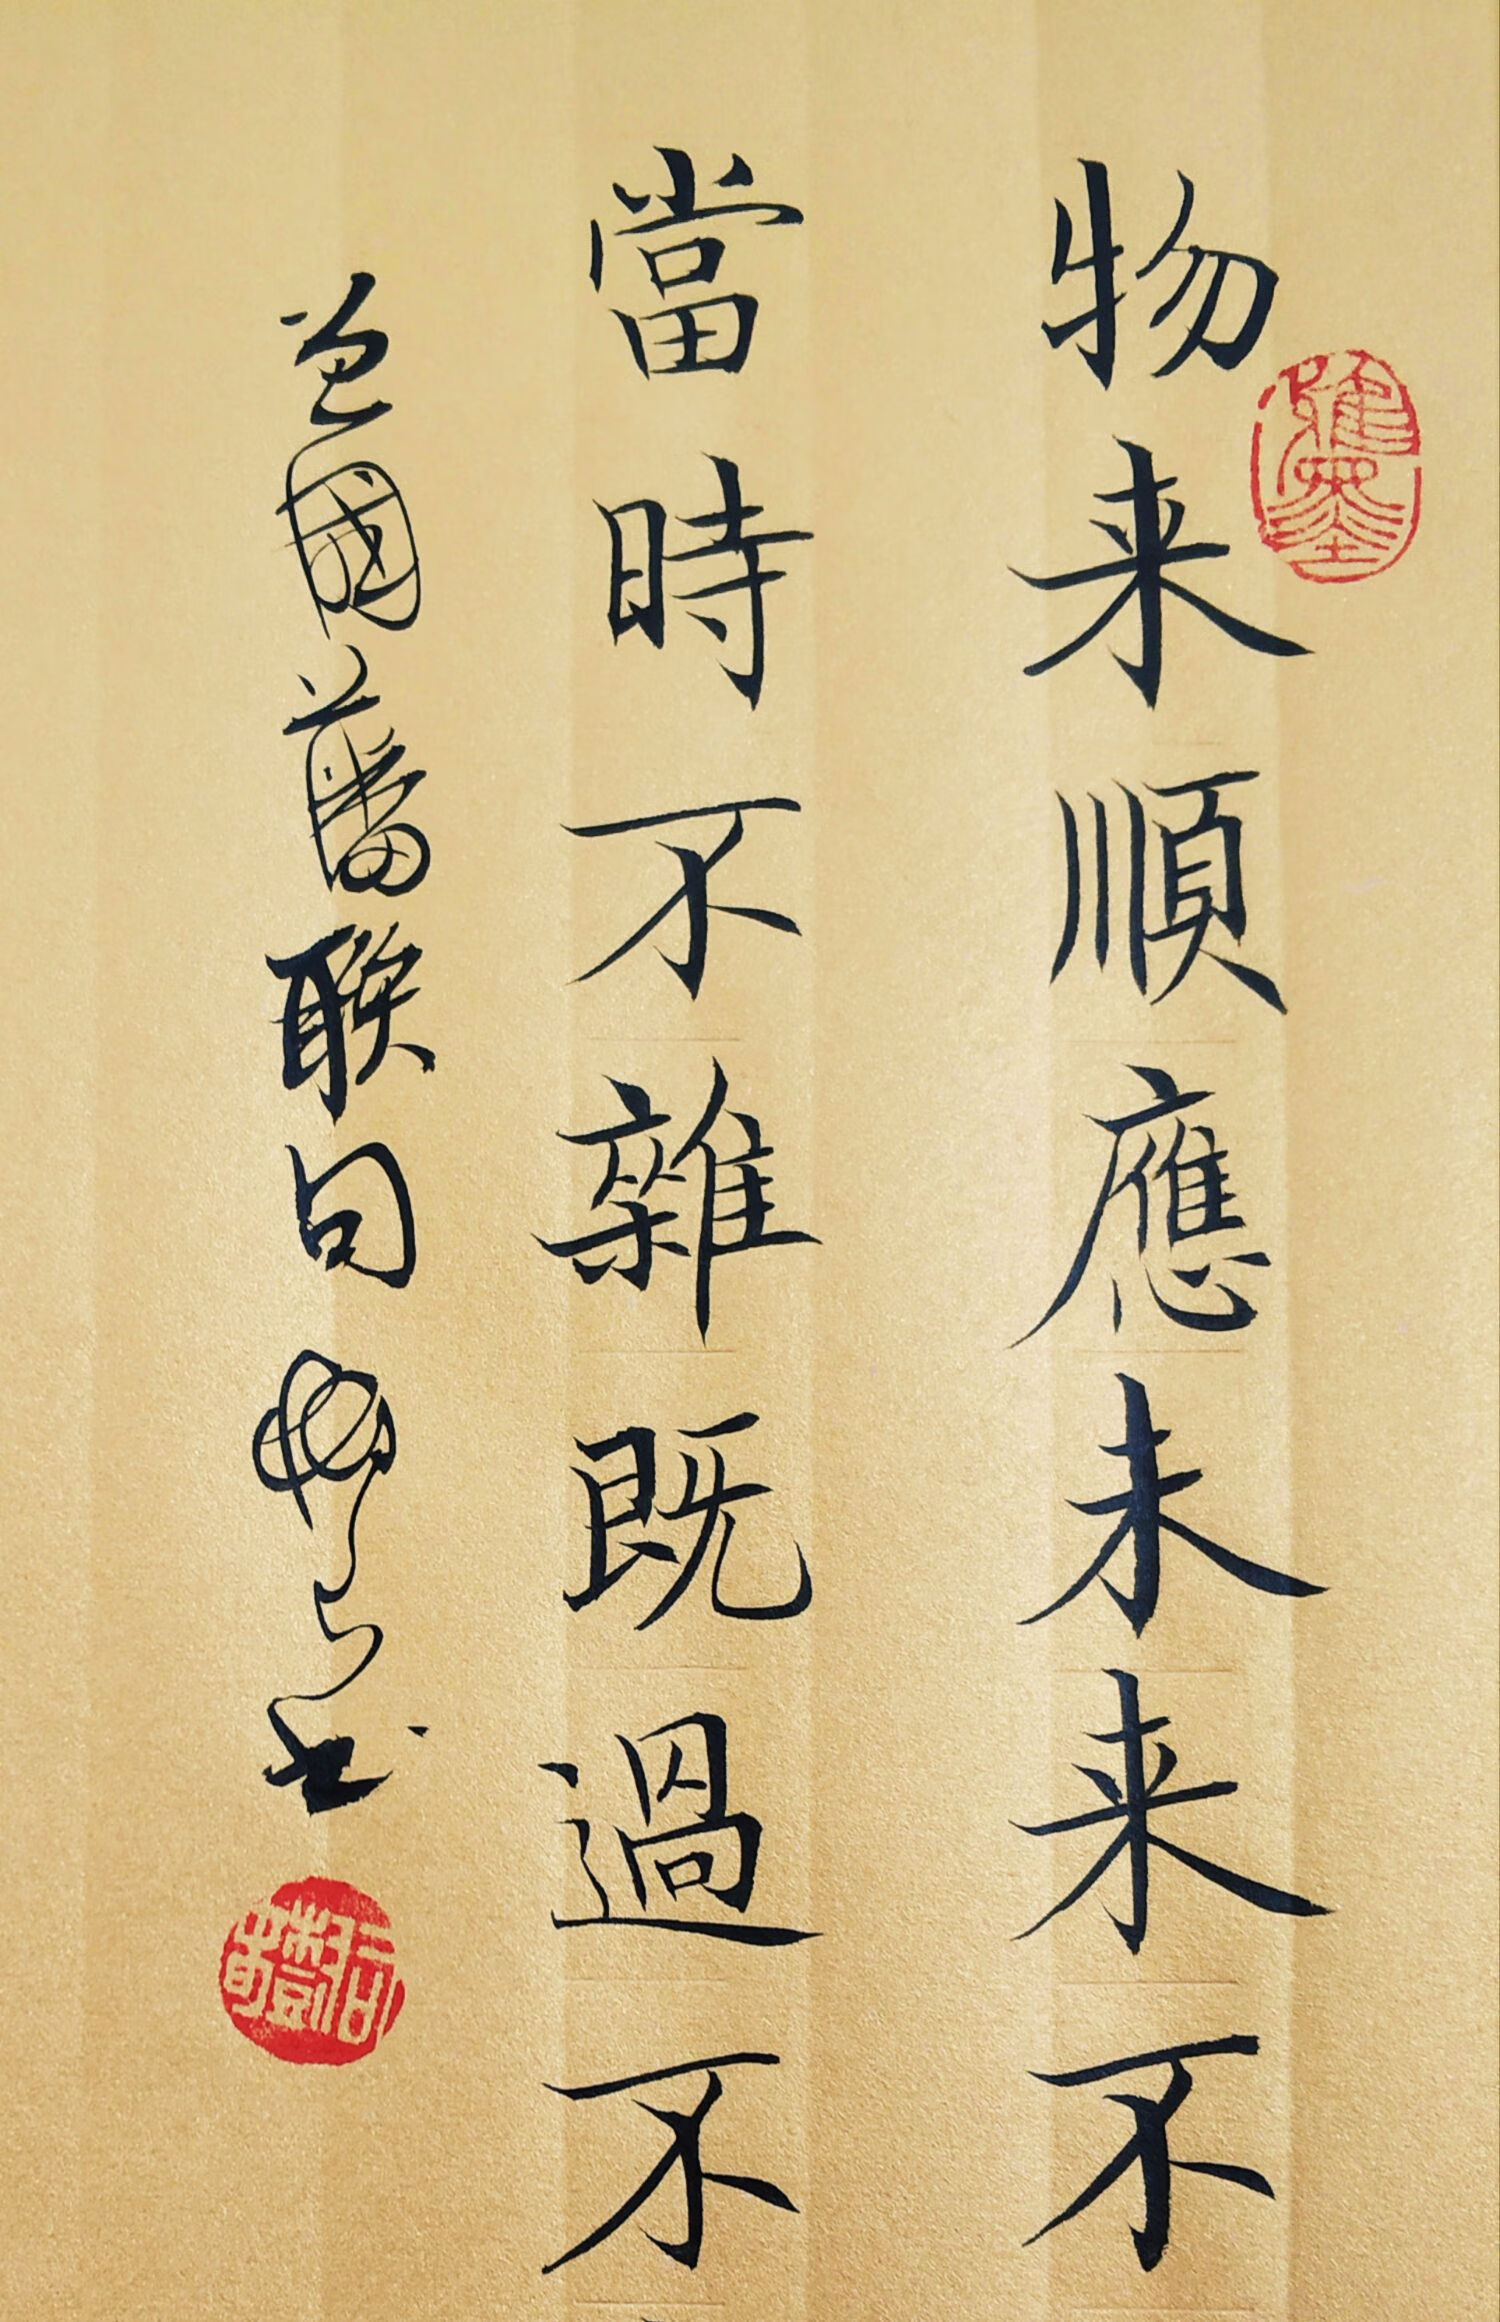 物来順應未来不
當時不雜既過不
曾國藩聯句
書